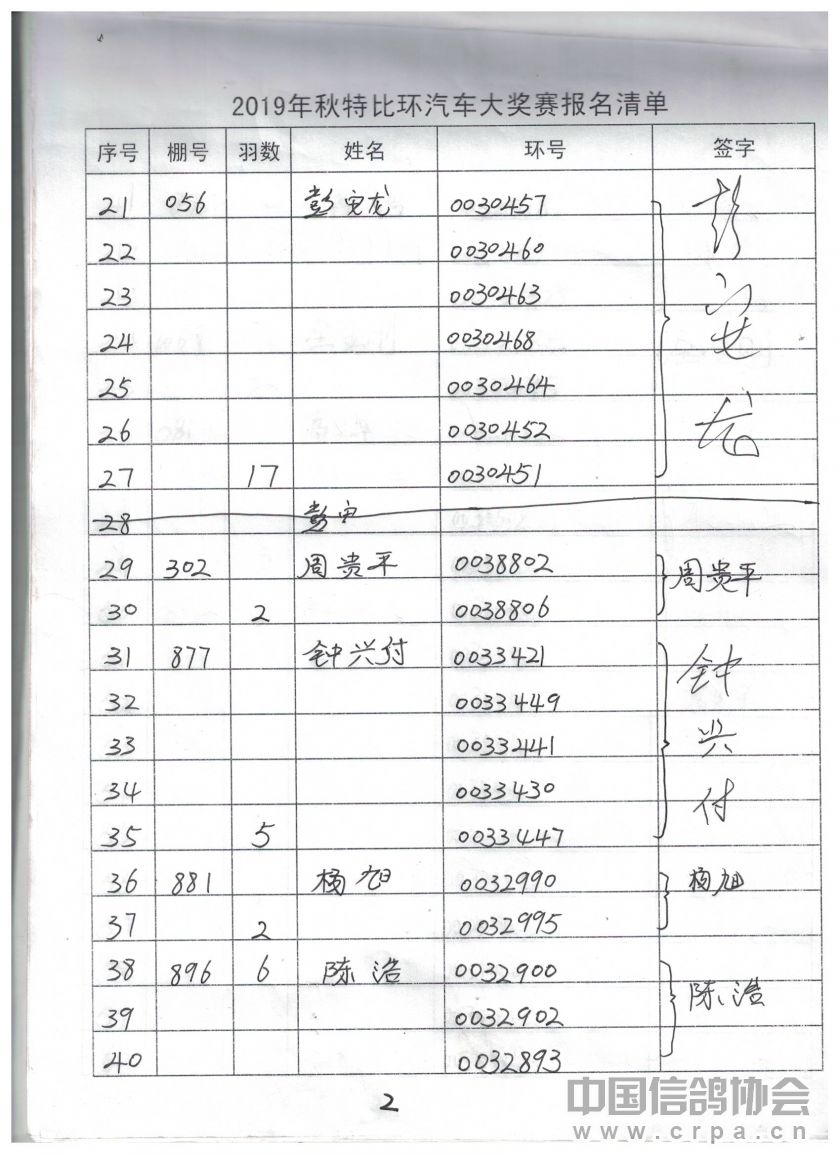 2019年秋特比环汽车大奖赛报名清单
序号 棚号 羽数 姓名 环号 签字
21 056 彭安龙 0030457 彭安龙
22 0030460
23 0030463
24 0030468
25 0030464
26 0030452
27 17 0030451
28 彭安
29 302 周贵平 0038802 周贵平
30 2 0038806
31 877 钟兴付 0033421 钟兴付
32 0033449
33 0033441
34 0033430
35 5 0033447
36 881 杨旭 0032990 杨旭
37 2 0032995
38 896 6 陈浩 0032900 陈浩
39 0032902
40 0032893
2
中国信鸽协会
www.crpa.cn